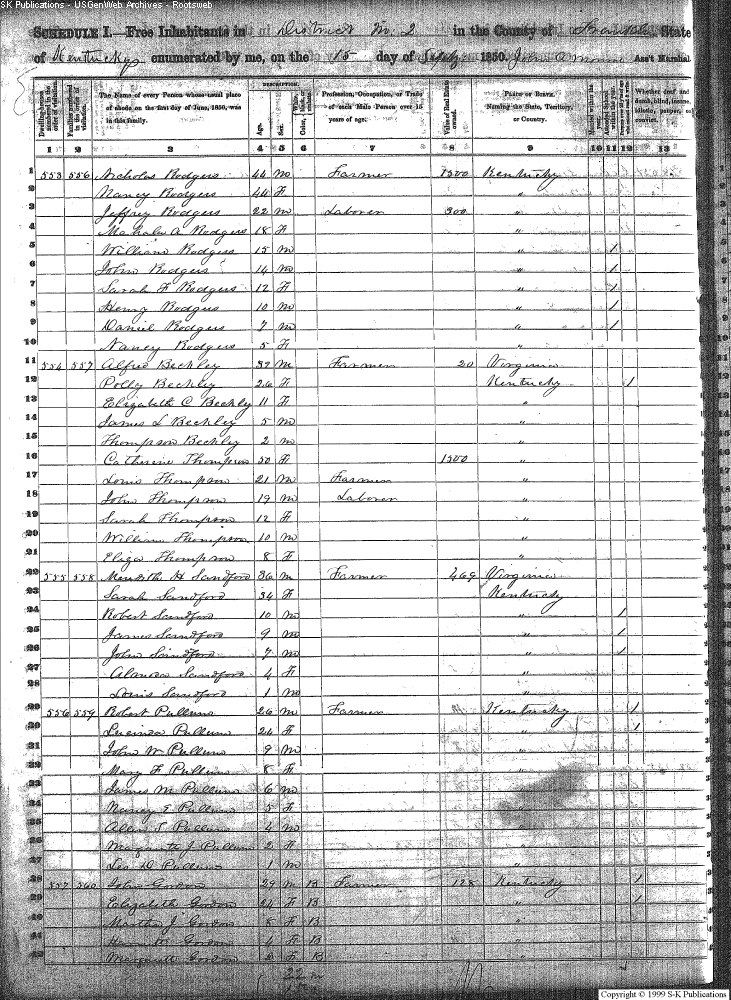 SK Publications - USGenWeb Archives - Rootsweb
SCHEDULE I.—Free Inhabitants in District No. 2 in the County of State
of Kentucky enumerated by me, on the 15 day of 1850. John Ass't Marshal
DESCRIPTION.
The Name of every Person whose usual place of abode on the first day of June, 1850, was in this family.
Age.
Sex.
Profession, Occupation, or Trade of each Male Person over 15 years of age.
Value of Real Estate owned.
PLACE OF BIRTH. Naming the State, Territory, or Country.
Whether deaf and dumb, blind, insane, idiotic, pauper, or convict.
1 2 3 4 5 6 7 8 9 10 11 12 13
1 553 556 Nicholas Rodgers 44 m Farmer 1500 Kentucky
2 Nancy Rodgers 44 F "
3 Jeffrey Rodgers 22 m Laborer 300 "
4 Mahala A Rodgers 18 F "
5 William Rodgers 15 m " 1
6 John Rodgers 14 m " 1
7 Sarah F Rodgers 12 F " 1
8 Henry Rodgers 10 m " 1
9 Daniel Rodgers 7 m " 1
10 Nancy Rodgers 5 F "
11 554 557 Alfred Beckley 37 m Farmer 20 Virginia
12 Polly Beckley 26 F Kentucky 1
13 Elizabeth C Beckley 11 F "
14 James L Beckley 5 m "
15 Thompson Beckley 2 m "
16 Catherine Thompson 50 F 1500 "
17 Louis Thompson 21 m Farmer "
18 John Thompson 19 m Laborer "
19 Sarah Thompson 12 F "
20 William Thompson 10 m "
21 Eliza Thompson 8 F "
22 555 558 H Sandford 36 m Farmer 469 Virginia
23 Sarah Sandford 34 F Kentucky
24 Robert Sandford 10 m " 1
25 James Sandford 9 m " 1
26 John Sandford 7 m " 1
27 Sandford 4 F "
28 Louis Sandford 1 m "
29 556 559 Robert Pullum 26 m Farmer Kentucky 1
30 Lucinda Pullum 24 F " 1
31 John W Pullum 9 m "
32 Mary F Pullum 8 F "
33 James M Pullum 6 m "
34 Nancy E Pullum 5 F "
35 Allen Pullum 4 m "
36 J Pullum 2 F "
37 D Pullum 1 m "
38 557 560 John Gordon 29 m B Farmer 128 Kentucky 1
39 Elizabeth Gordon 24 F B " 1
40 Martha J Gordon 8 F B "
41 Gordon 4 F B "
42 Margarett Gordon 2 F B "
22 m
Copyright © 1999 S-K Publications